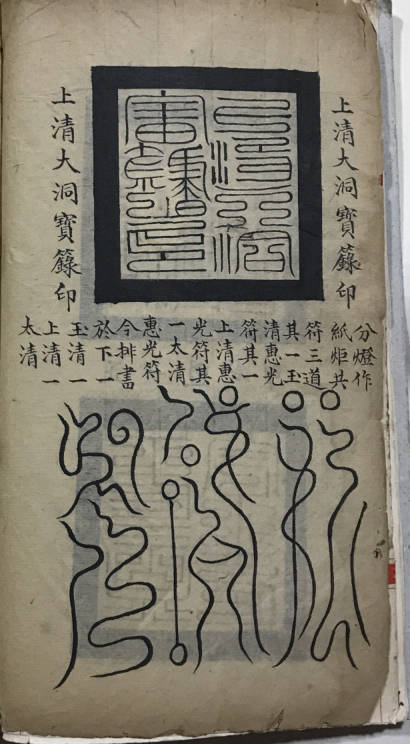 上清大洞寶籙印
上清大洞寶籙印
分燈作
紙炬共
符三道
其一玉
清惠光
符其一
上清惠
光符其
一太清
惠光符
今排書
於下一
玉清一
上清一
太清